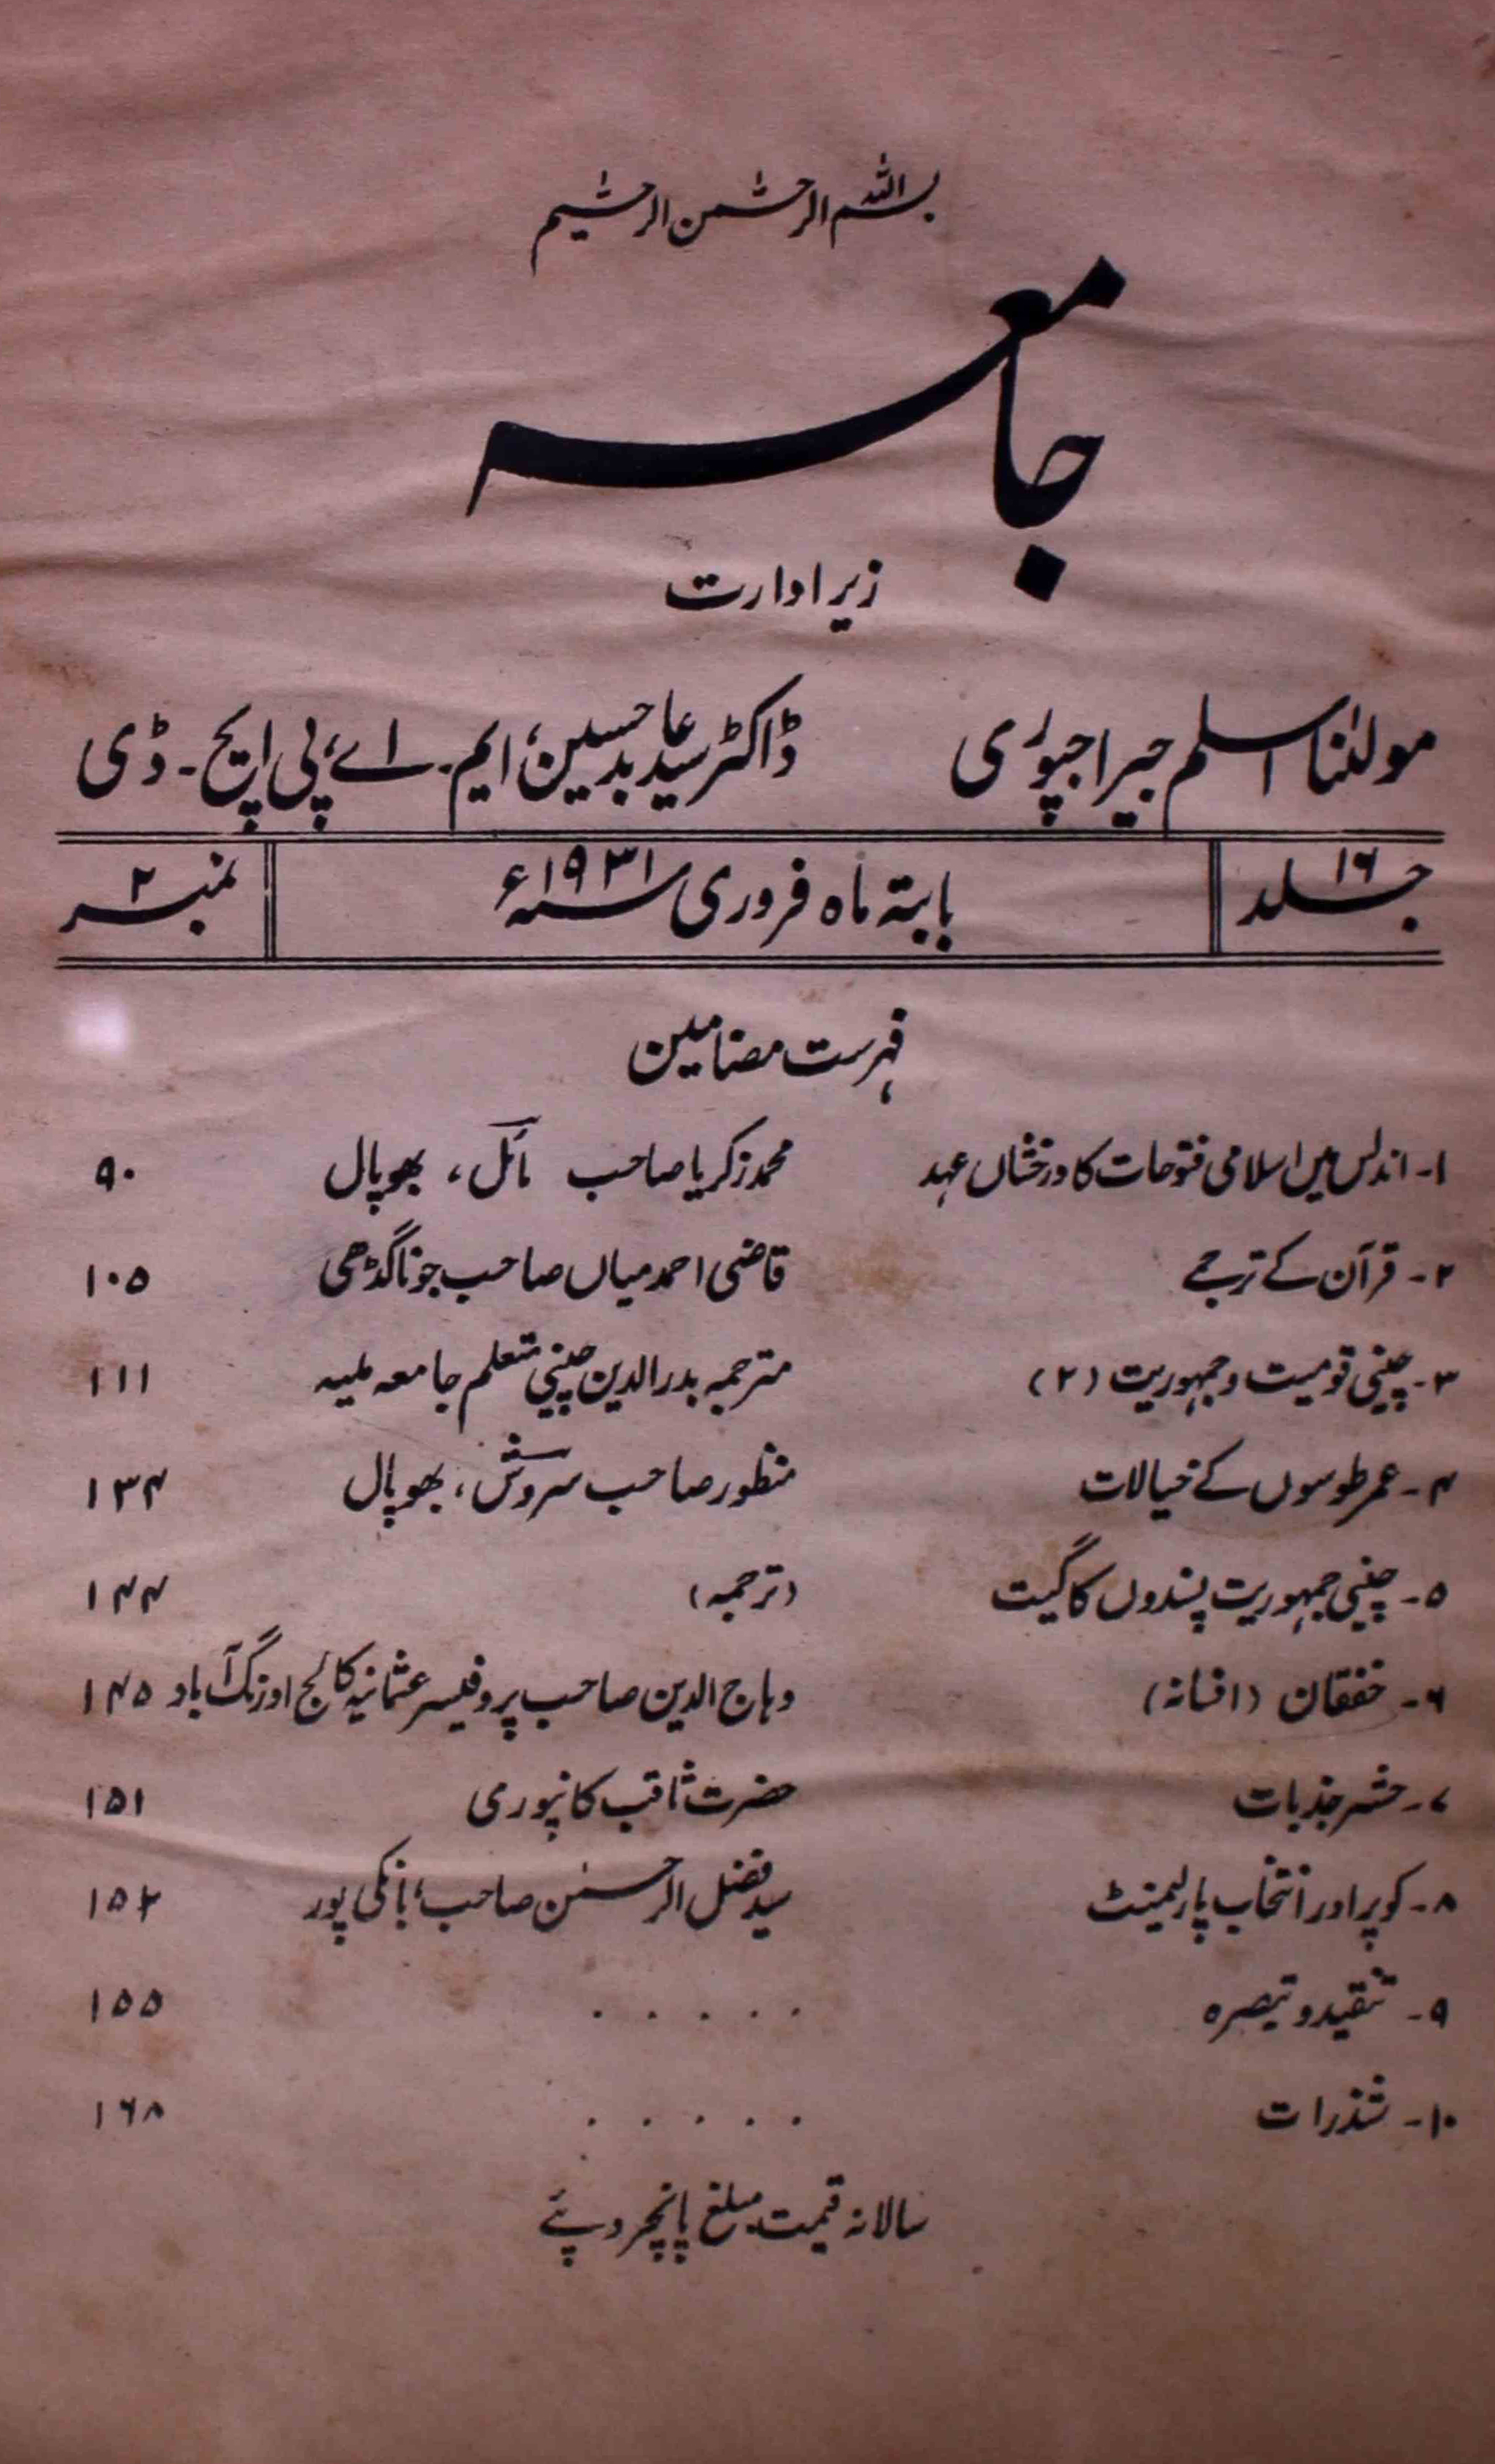 بسم اللہ الرحمٰن الرحیم
جامعہ
زیر ادارت
مولٰنا اسلم جیراجپوری ڈاکٹر سید عابد حسین، ایم۔اے، پی ایچ۔ڈی
جلد ۱۶ بابتہ ماہ فروری سنہ ۱۹۳۱ء نمبر ۲
فہرست مضامین
۱۔ اندلس میں اسلامی فتوحات کا درخشاں عہد محمد زکریا صاحب مائل، بھوپال ۹۰
۲۔ قرآن کے ترجمے قاضی احمد میاں صاحب جوناگڈھی ۱۰۵
۳۔ چینی قومیت و جمہوریت (۲) مترجمہ بدرالدین چینی متعلم جامعہ ملیہ ۱۱۱
۴۔ عمر طوسوں کے خیالات منظور صاحب سروش، بھوپال ۱۳۴
۵۔ چینی جمہوریت پسندوں کا گیت (ترجمہ) ۱۴۴
۶۔ خفقان (افسانہ) وہاج الدین صاحب پروفیسر عثمانیہ کالج اورنگ آباد ۱۴۵
۷۔ حشر جذبات حضرت ثاقب کانپوری ۱۵۱
۸۔ کوپر اور انتخاب پارلیمنٹ سید فضل الرحمٰن صاحب، بانکی پور ۱۵۲
۹۔ تنقید و تبصرہ . . . . . ۱۵۵
۱۰۔ شذرات . . . . . ۱۶۸
سالانہ قیمت مبلغ پانچروپئے